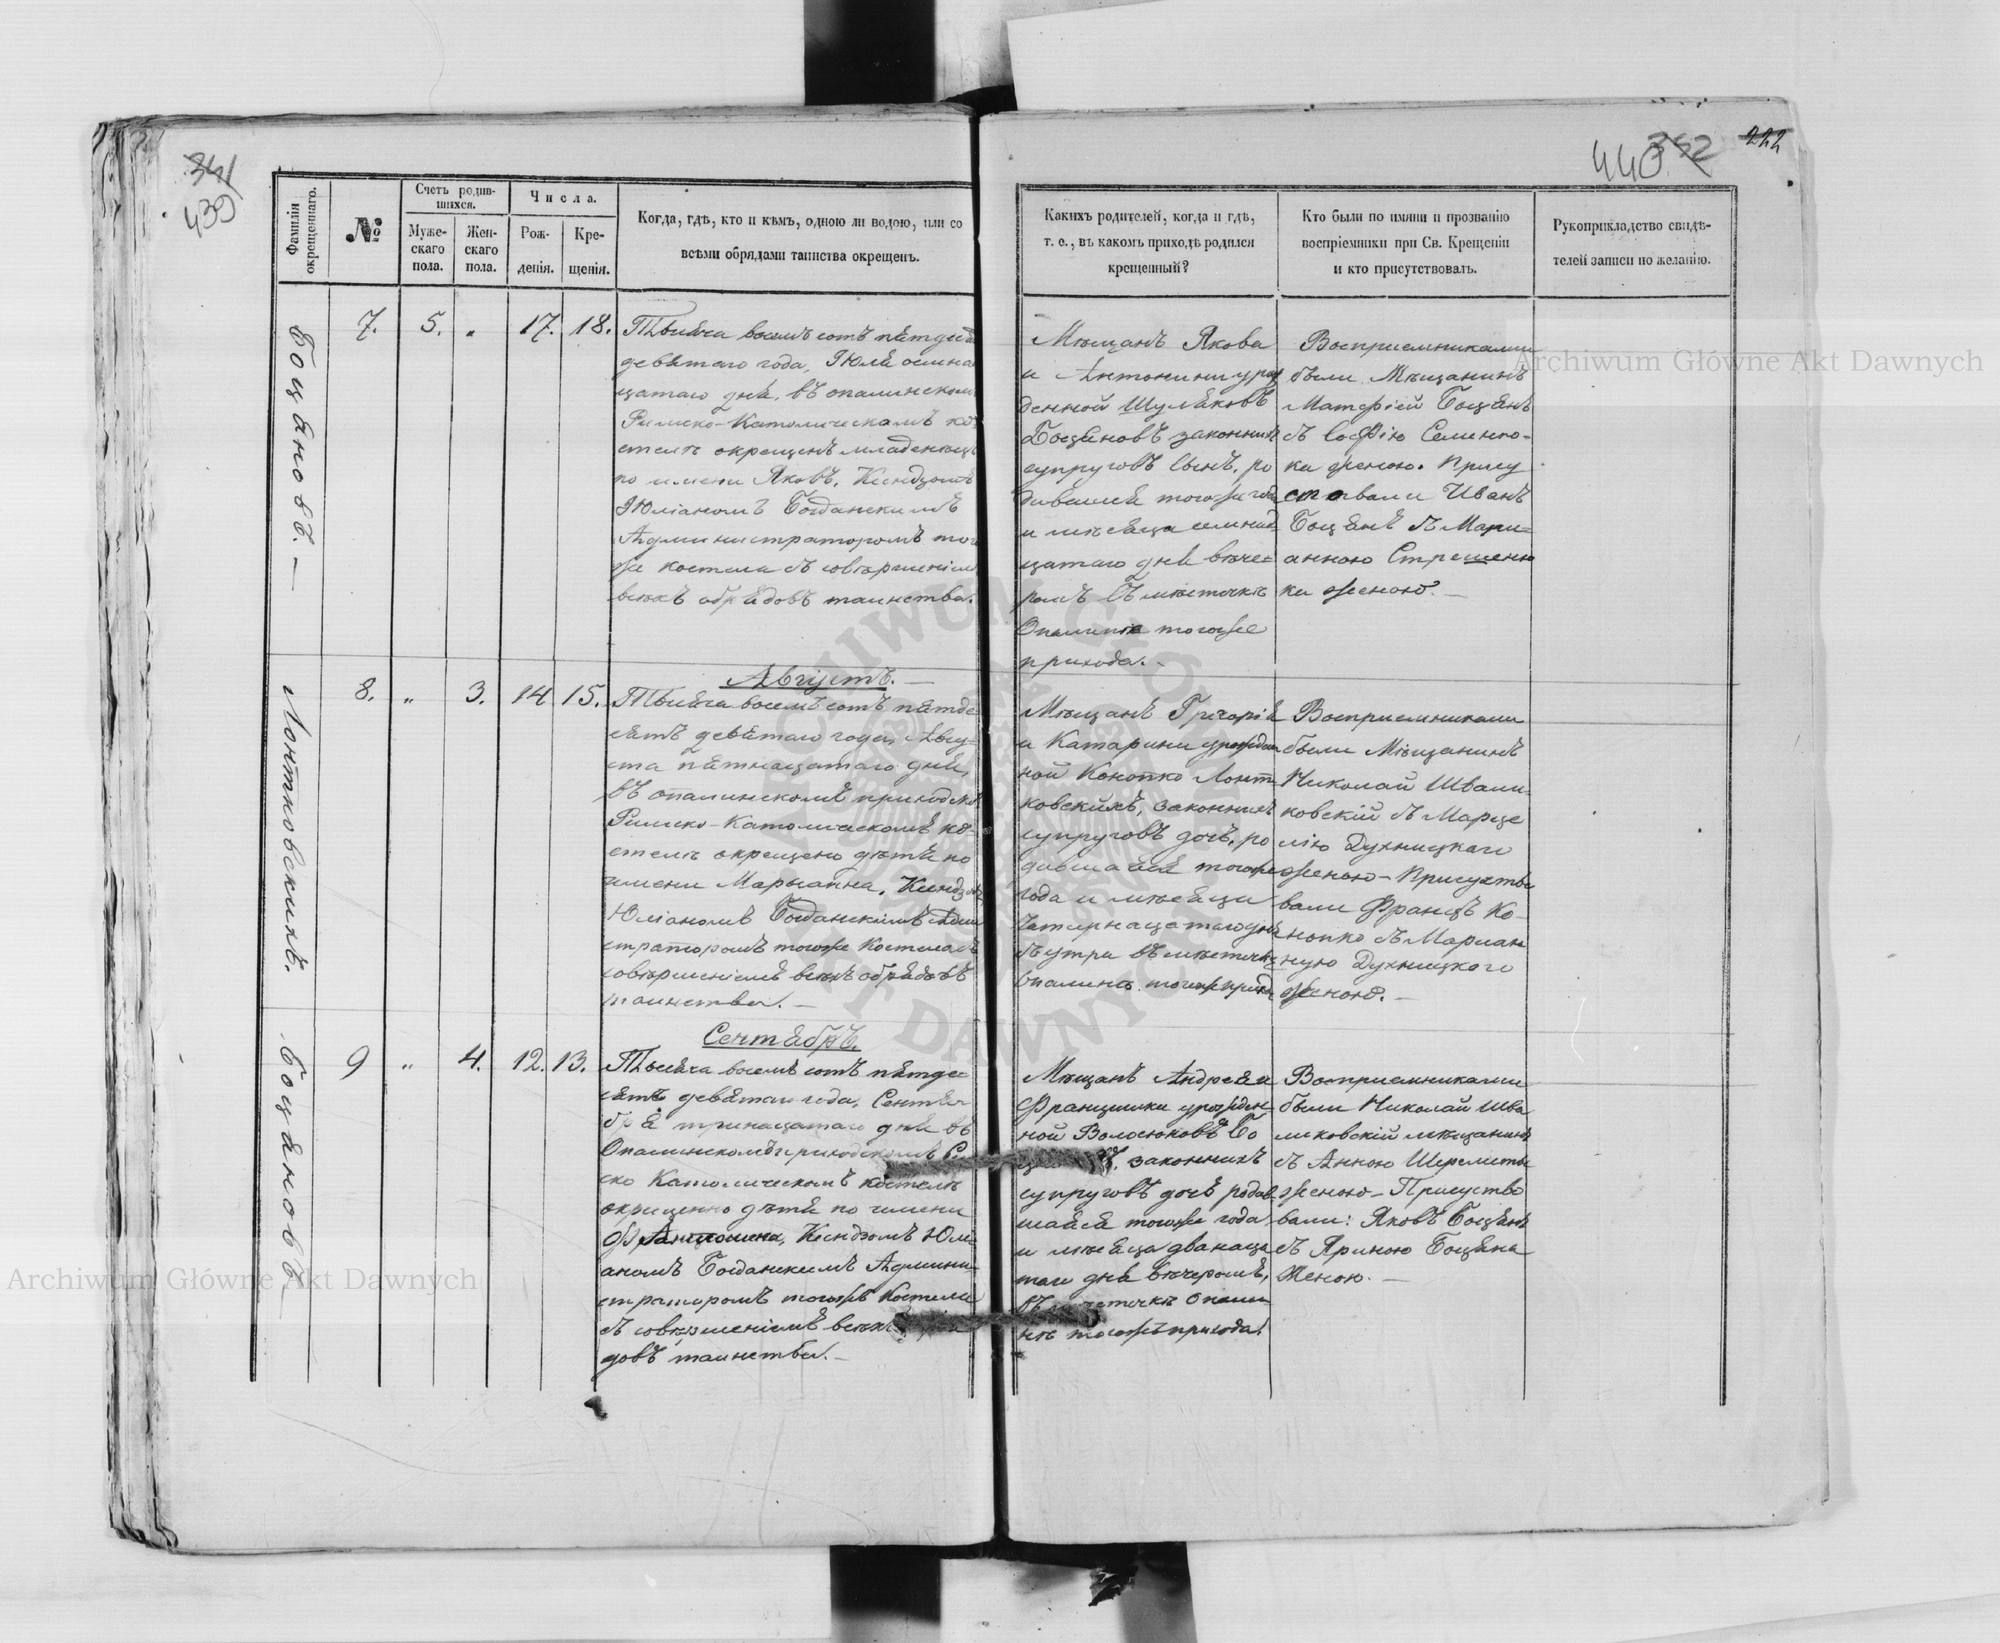 341
439
440
352
222
Фамилія окрещеннаго.
№
Счетъ родив-
шихся.
Муже-
скаго
пола.
Жен-
скаго
пола.
Числа.
Рож-
денія.
Кре-
щенія.
Когда, гдѣ, кто и кѣмъ, одною ли водою, или со
всѣми обрядами таинства окрещенъ.
Какихъ родителей, когда и гдѣ,
т. е., въ какомъ приходѣ родился
крещенный?
Кто были по имяни и прозванію
воспріемники при Св. Крещеніи
и кто присутствовалъ.
Рукоприкладство свидѣ-
телей записи по желанію.
Боцяновъ. —
7.
5.
„
17.
18.
Тысяча восемъ сотъ пятдеся
девятаго года, Іюля осмна
цатаго дня, въ опалинском
Римско-Католическомъ ко
стелѣ окрещенъ младенецъ
по имени Яковъ, Ксендзомъ
Юліаномъ Богданскимъ
Администраторомъ того
же костела съ совѣршеніем
всѣхъ обрядовъ таинства.
Мѣщанъ Якова
и Антонини урож
денной Шуляковъ
Боцяновъ законных
супруговъ сынъ, ро
дившися тогоже года
и мѣсяца семнад
цатаго дня вѣче-
ромъ въ мѣстечкѣ
Опалинѣ тогоже
прихода. -
Восприемниками
были Мѣщанинъ
Матфiей Боцянъ
съ Софію Семенко-
ка женою. Прису
ствовали Иванъ
Боцянъ съ Мари-
анною Стрешеню
ка женою. —
Лонтковскихъ.
8.
„
3.
14
15.
Августъ. —
Тысяча восемъ сотъ пятде
сятъ девятаго года, Авгу-
ста пятнацатаго дня,
въ опалинскомъ приходско
Римско-Католическомъ ко-
стелѣ окрещено дѣтя по
имени Марыанна, Ксендзомъ
Юліаномъ Богданскимъ Адми
стратором тогоже Костела съ
совѣршеніемъ всѣхъ обрядовъ
таинства. —
Мѣщанъ Григорія
и Катарини урожден
ной Конопко Лонт
ковскихъ, законных
супруговъ дочъ, ро
дившайся тогоже
года и мѣсяца
четирнацатаго дня
съ утра въ мѣстечкѣ
Опалинѣ тогоже приход
Восприемниками
были Мѣщанинъ
Николай Швали
ковскій съ Марце
лію Духницкаго
женою - Присутство
вали Францъ Ко-
нопко съ Мариан
ную Духницкого
женою. —
Боцяновъ —
9
„
4.
12.
13.
Сентябръ.
Тысяча восемъ сотъ пятде-
сятъ девятаго года, Сентя
бря тринацатаго дня въ
Опалинскомъ приходскомъ Рим
ско Католическомъ костелѣ
окрещенно дѣтя по имени
Ксендзомъ Юлі
аномъ Богданскимъ Админи-
страторомъ тогожъ Костела
съ совѣршеніемъ всѣхъ
довъ таинства. —
Мѣщанъ Андрея и
Францишки урожден-
ной Волосюковъ Бо
законних
супруговъ дочъ родив
шайся тогоже года
и мѣсяца дванаца
таго дня вѣчеромъ,
въ мѣстечкѣ Опали-
нѣ тогожъ прихода.
Восприемниками
были Николай Шва
ликовскій мѣщанинъ
съ Анною Шереметы
женою - Присутство
вали: Яковъ Боцянъ
съ Яриною Боцяна
Женою. —
Archiwum Główne Akt Dawnych
Archiwum Główne Akt Dawnych
ARCHIWUM GŁÓWNE AKT DAWNYCH